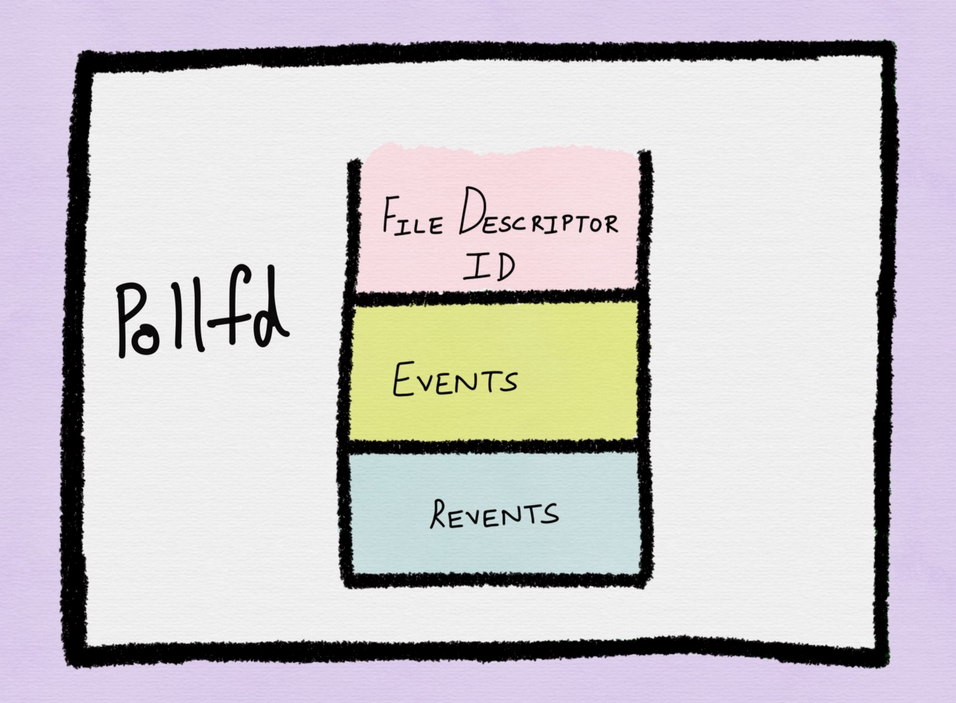 Pollfd
FILE DESCRIPTOR
ID
EVENTS
REVENTS